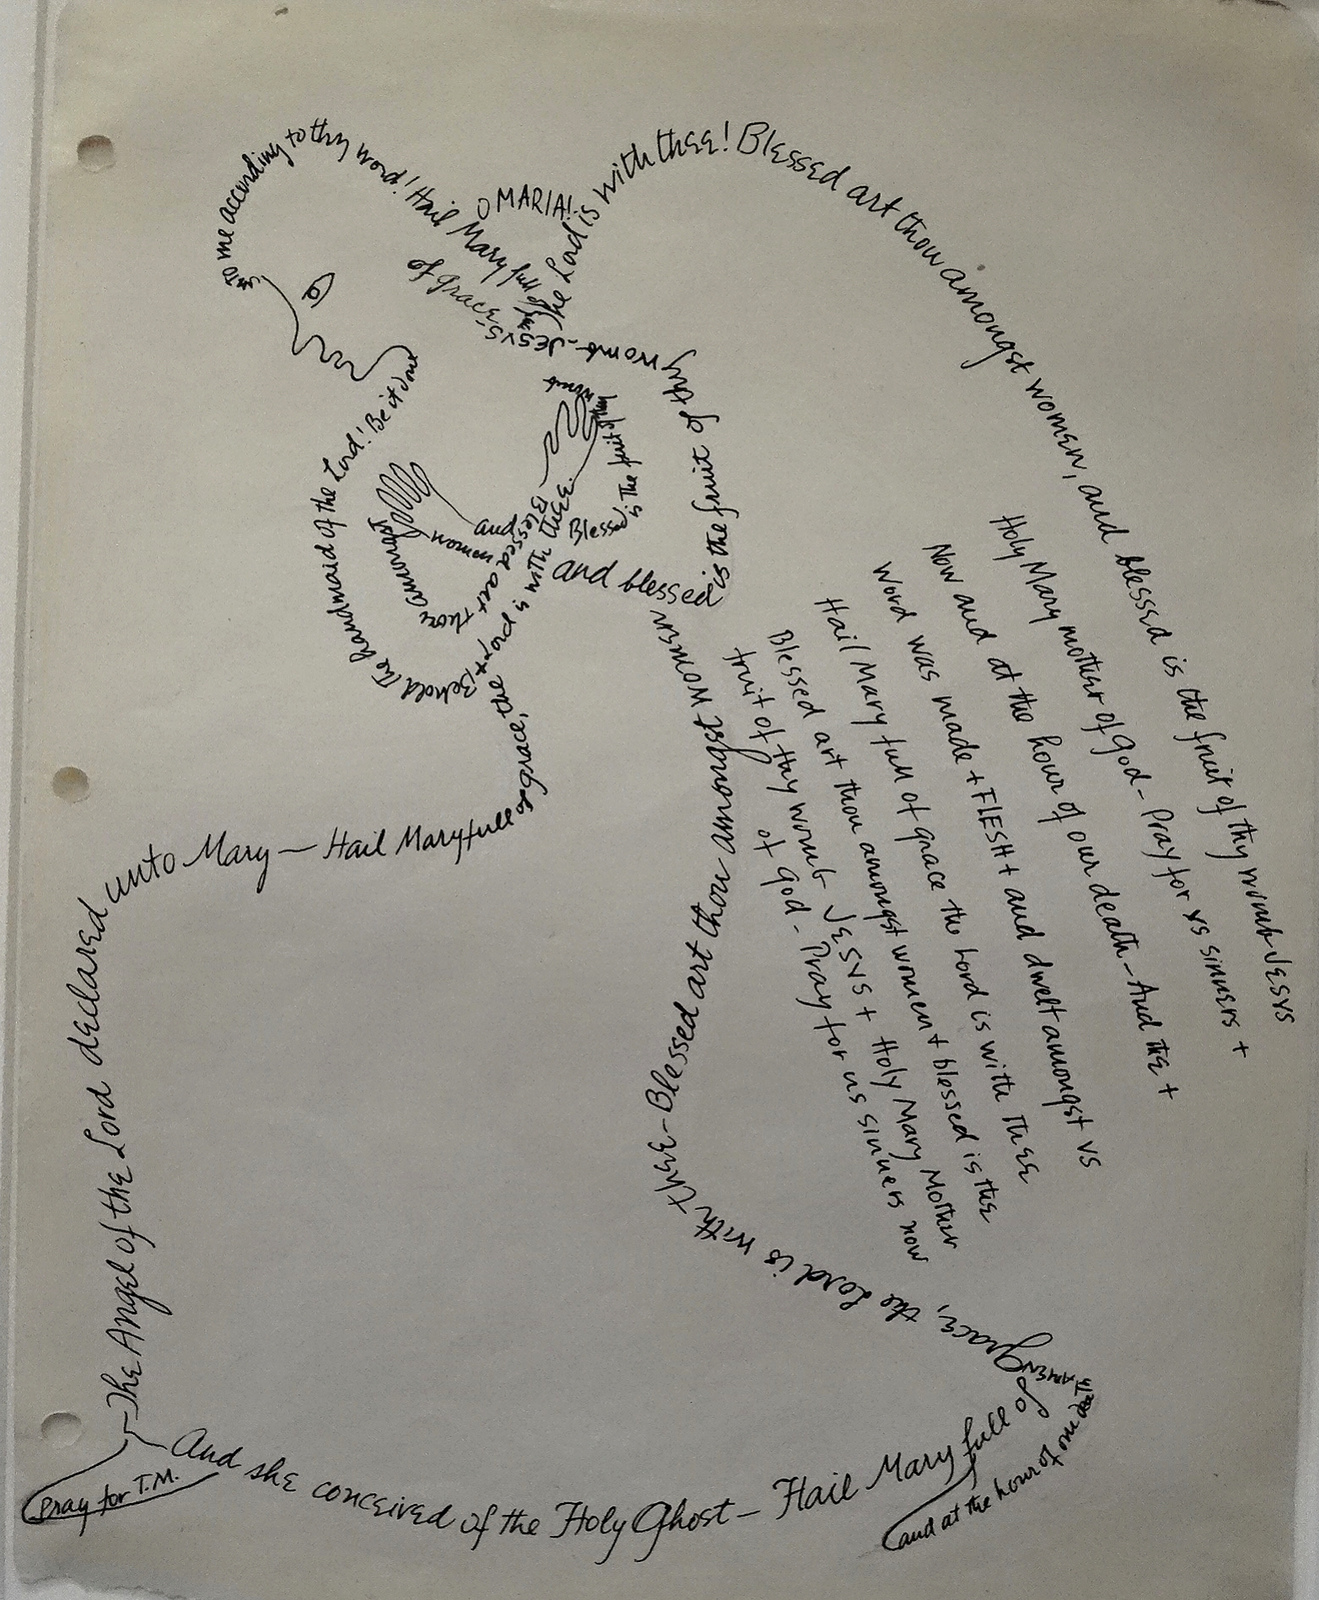 The Angel of the Lord declared
unto Mary — Hail Mary full
of grace, the Lord is with thee.
Blessed art thou amongst
women and
Blessed is the fruit of thy
womb
Behold the handmaid of the Lord! Be it done
unto me according to thy word! Hail Mary full of grace
The Lord is with thee! Blessed art thou amongst women, and blessed is the fruit of thy womb JESVS
O MARIA!
Holy Mary mother of God - Pray for vs sinners +
Now and at the hour of our death - And THE +
Word was made + FLESH + and dwelt amongst vs
Hail Mary full of grace the Lord is with THEE
Blessed art thou amongst women + blessed is the
fruit of thy womb JESVS + Holy Mary Mother
of God - Pray for us sinners now
and at the hour of our death AMEN
And she conceived of the Holy Ghost — Hail Mary full
of grace, the Lord is with
thee - Blessed art thou amongst women
and blessed
is the fruit of thy
womb - JESVS
of grace
Pray for T.M.